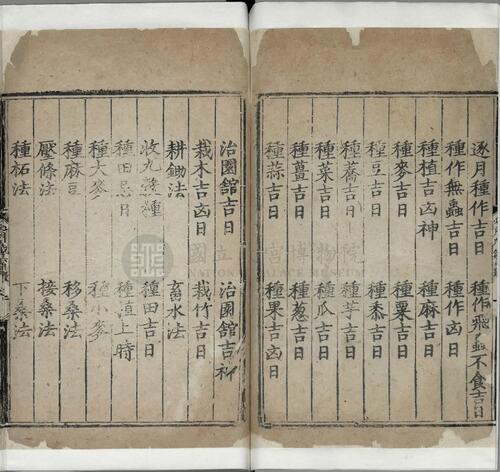 逐月種作吉日　種作飛蟲不食吉日
種作無蟲吉日　種作凶日
種植吉凶神　種麻吉日
種麥吉日　種粟吉日
種豆吉日　種黍吉日
種蕎吉日　種芋吉日
種菜吉日　種瓜吉日
種薑吉日　種葱吉日
種蒜吉日　種果吉凶日
治園舘吉日　治園舘吉
栽木吉凶日　栽竹吉日
耕鋤法　畜水法
收九穀種　種田吉日
種田忌日　種上時
種大麥　種小麥
種麻豆　移桑法
壓條法　接桑法
種柘法　下桑法
國立故宮博物院
NATIONAL PALACE MUSEUM